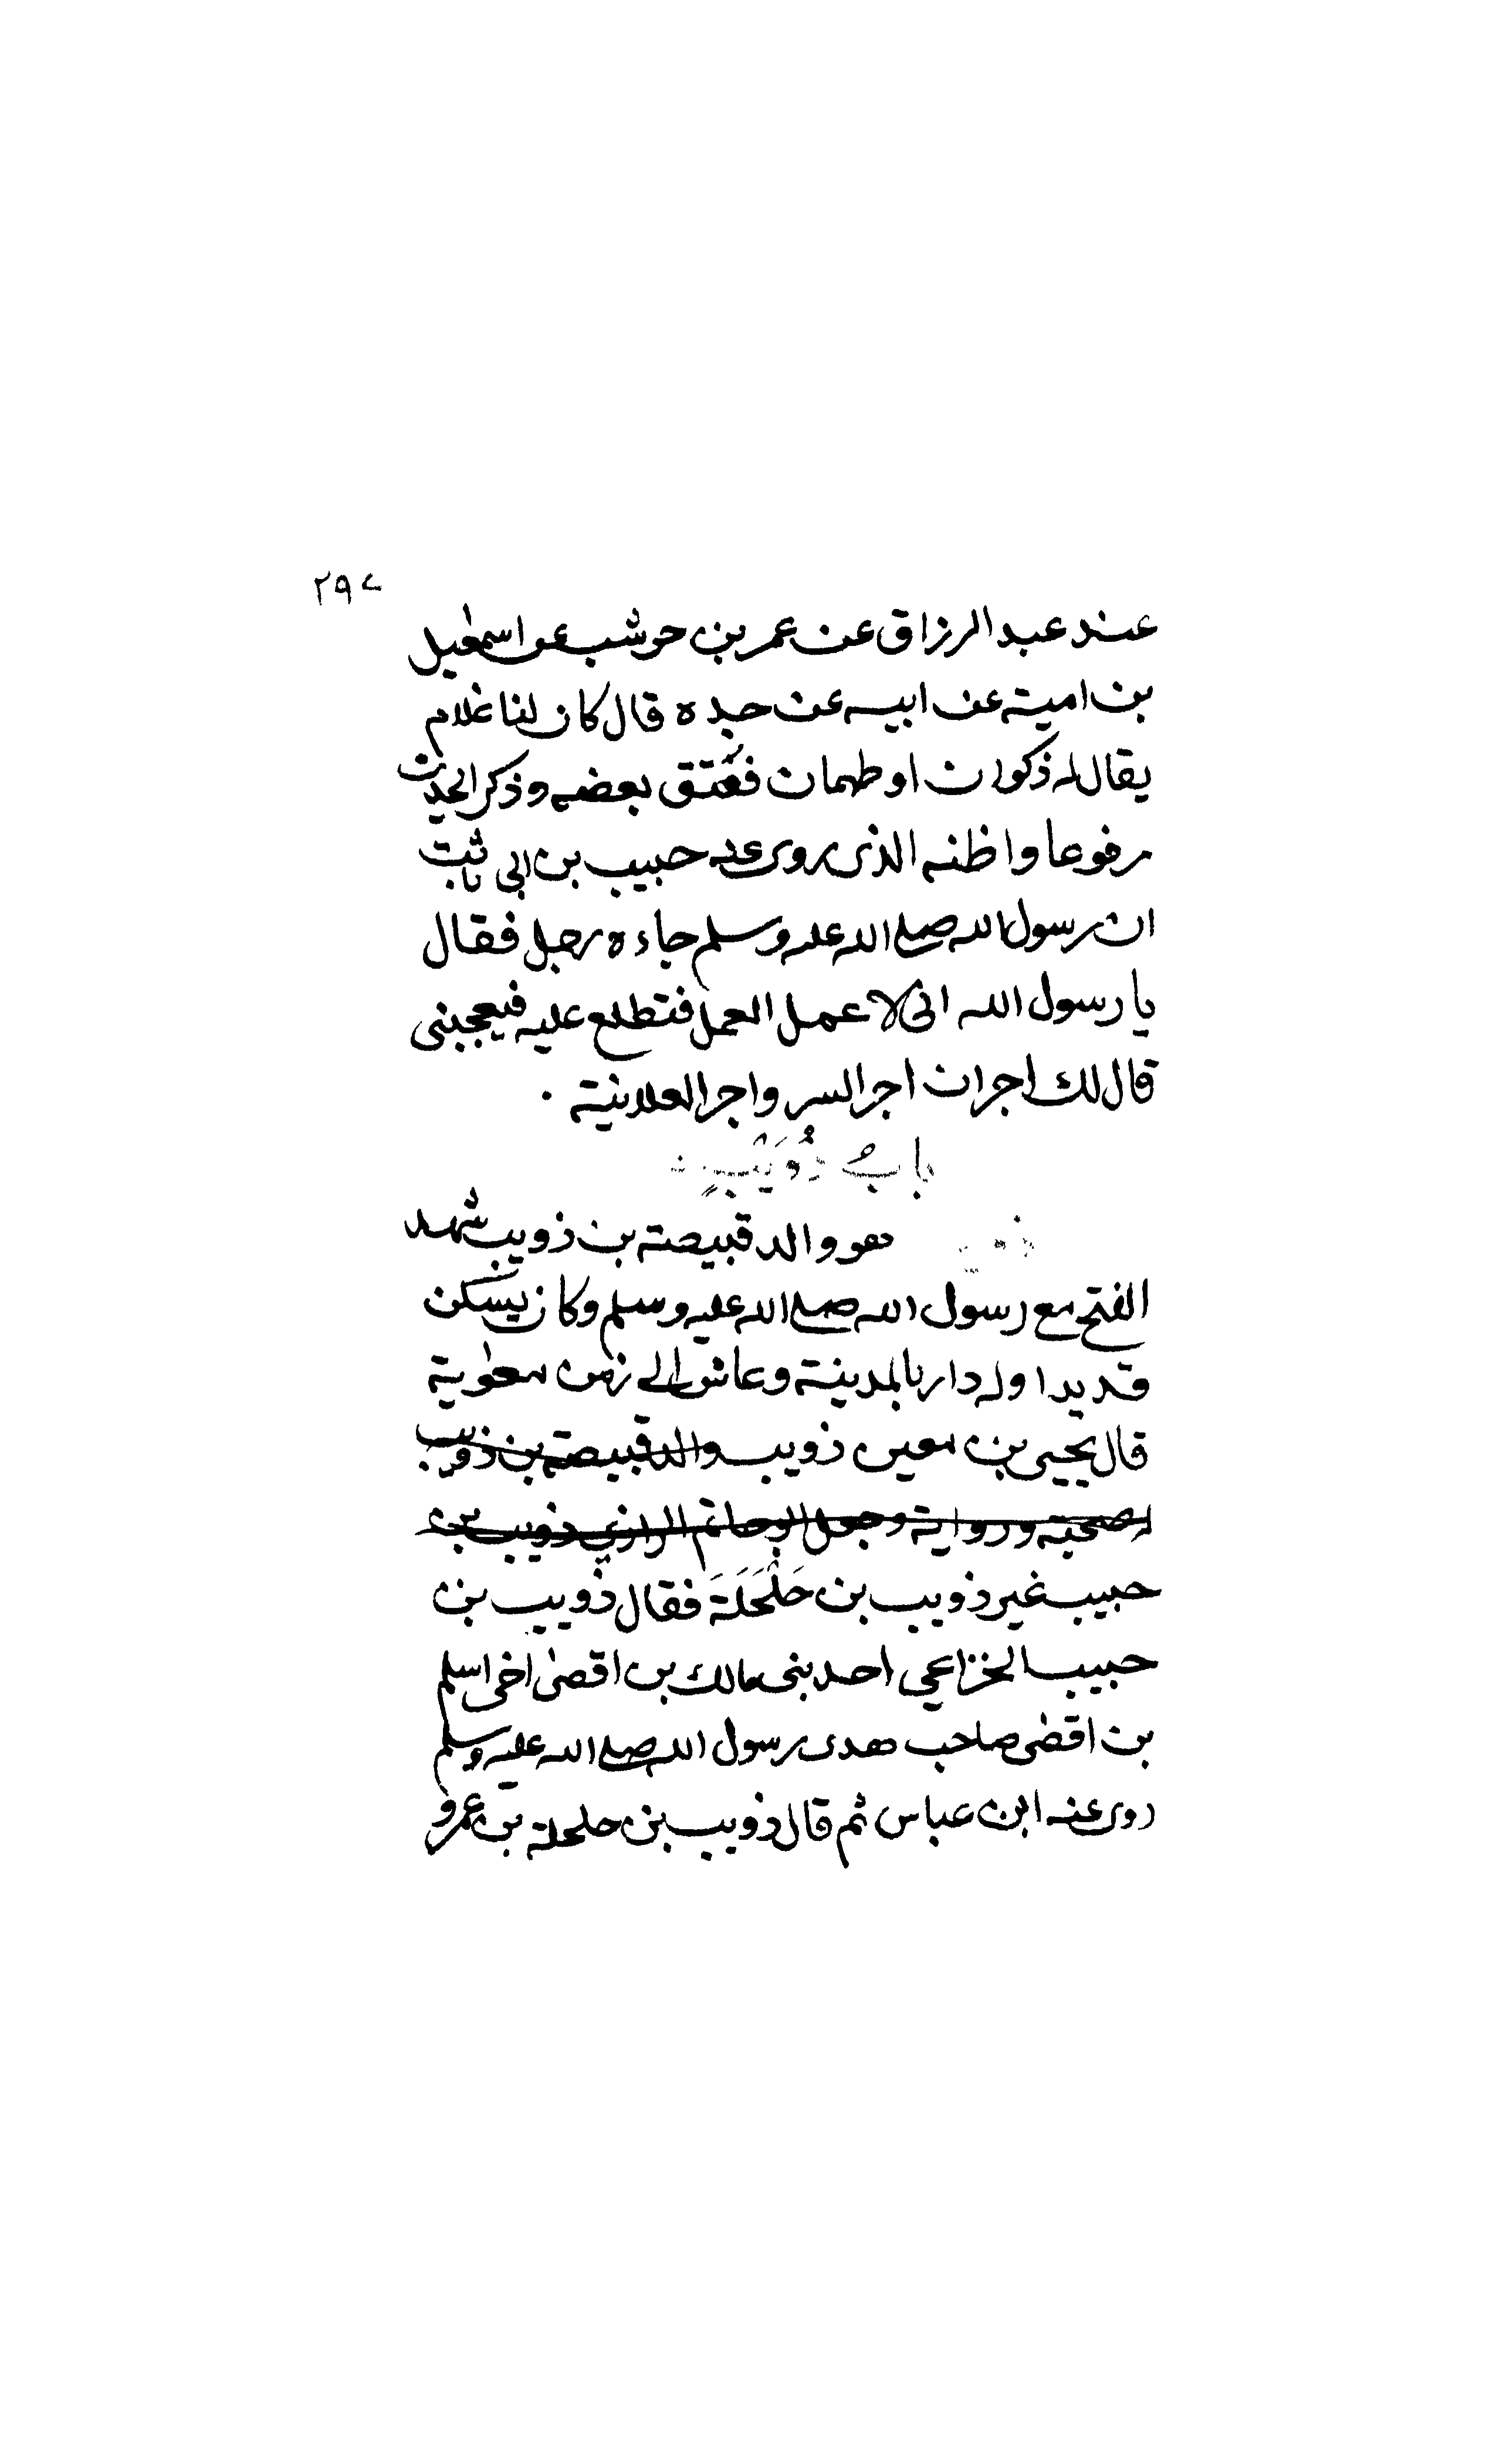 ٢٩٧
عند عبد الرزاق عن عمر بن حوشب عن اسمعيل
بن امية عن ابيه عن جده قال كان لنا غلام
يقال له ذكوان او طهمان فعتق بعضه وذكر الحديث
مرفوعا واظنه الذى روى عنه حبيب بن ابى ثابت
ان رسول الله صلى الله عليه وسلم جاءه رجل فقال
يا رسول الله انى لاعمل العمل فتطلع عليه فيعجبنى
قال لك اجران اجر السر واجر العلانية .
باب ذُوَيْبٍ
هو والد قبيصة بن ذويب شهد
الفتح مع رسول الله صلى الله عليه وسلم وكان يسكن
قديدا وله دار بالمدينة وعاش الى زمن معوية
قال يحيى بن معين ذويب والد قبيصة بن ذويب
له صحبة ورواية وجعل ابو حاتم الرازي ذويب بن
حبيب غير ذويب بن حَلْحَلَةَ فقال ذويب بن
حبيب الخزاعي احد بنى مالك بن اقصى اخى اسلم
بن اقصى صاحب هدى رسول الله صلى الله عليه وسلم
روى عنه ابن عباس ثم قال ذويب بن حلحلة بن عمرو